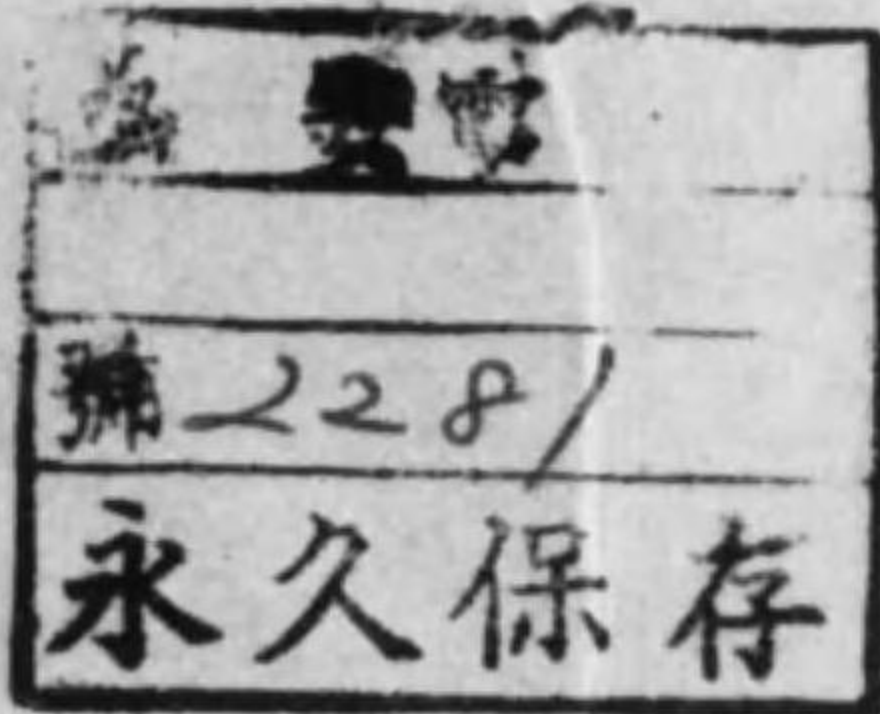 號2281
永久保存